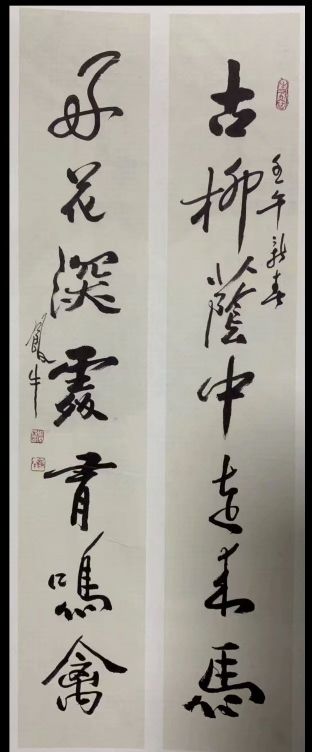 古柳蔭中来馬
壬午新春
好花深處有鳴禽
牛